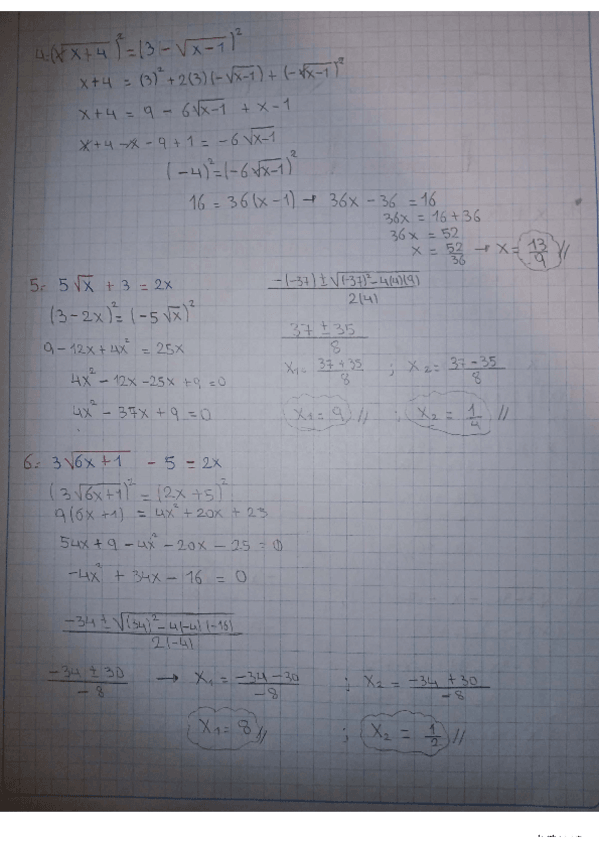 4.- (√(x+4))² = (3 - √(x-1))²
x+4 = (3)² + 2(3)(-√(x-1)) + (-√(x-1))²
x+4 = 9 - 6√(x-1) + x - 1
x+4 - x - 9 + 1 = -6√(x-1)
(-4)² = (-6√(x-1))²
16 = 36(x-1) → 36x - 36 = 16
36x = 16 + 36
36x = 52
x = 52/36 → x = 13/9 //
5.- 5√x + 3 = 2x
(3-2x)² = (-5√x)²
9 - 12x + 4x² = 25x
4x² - 12x - 25x + 9 = 0
4x² - 37x + 9 = 0
(-(-37) ± √((-37)² - 4(4)(9))) / 2(4)
(37 ± 35) / 8
x₁ = (37+35)/8 ; x₂ = (37-35)/8
x₁ = 9 // ; x₂ = 1/4 //
6.- 3√(6x+1) - 5 = 2x
(3√(6x+1))² = (2x+5)²
9(6x+1) = 4x² + 20x + 25
54x + 9 - 4x² - 20x - 25 = 0
-4x² + 34x - 16 = 0
(-34 ± √((34)² - 4(-4)(-16))) / 2(-4)
(-34 ± 30) / -8 → x₁ = (-34-30)/-8 ; x₂ = (-34+30)/-8
x₁ = 8 // ; x₂ = 1/2 //